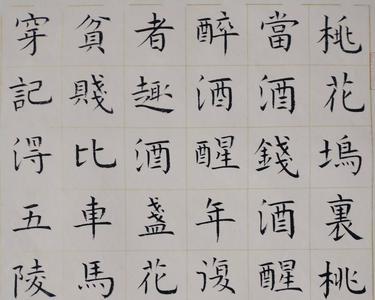 桃花塢裏桃
當酒錢酒醒
醉酒醒年復
者趣酒盞花
貧賤比車馬
穿記得五陵